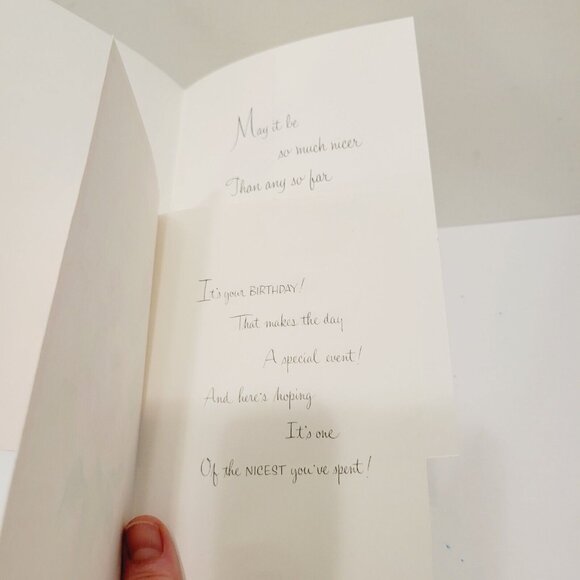 May it be
so much nicer
Than any so far
It's your BIRTHDAY!
That makes the day
A special event!
And here's hoping
It's one
Of the NICEST you've spent!